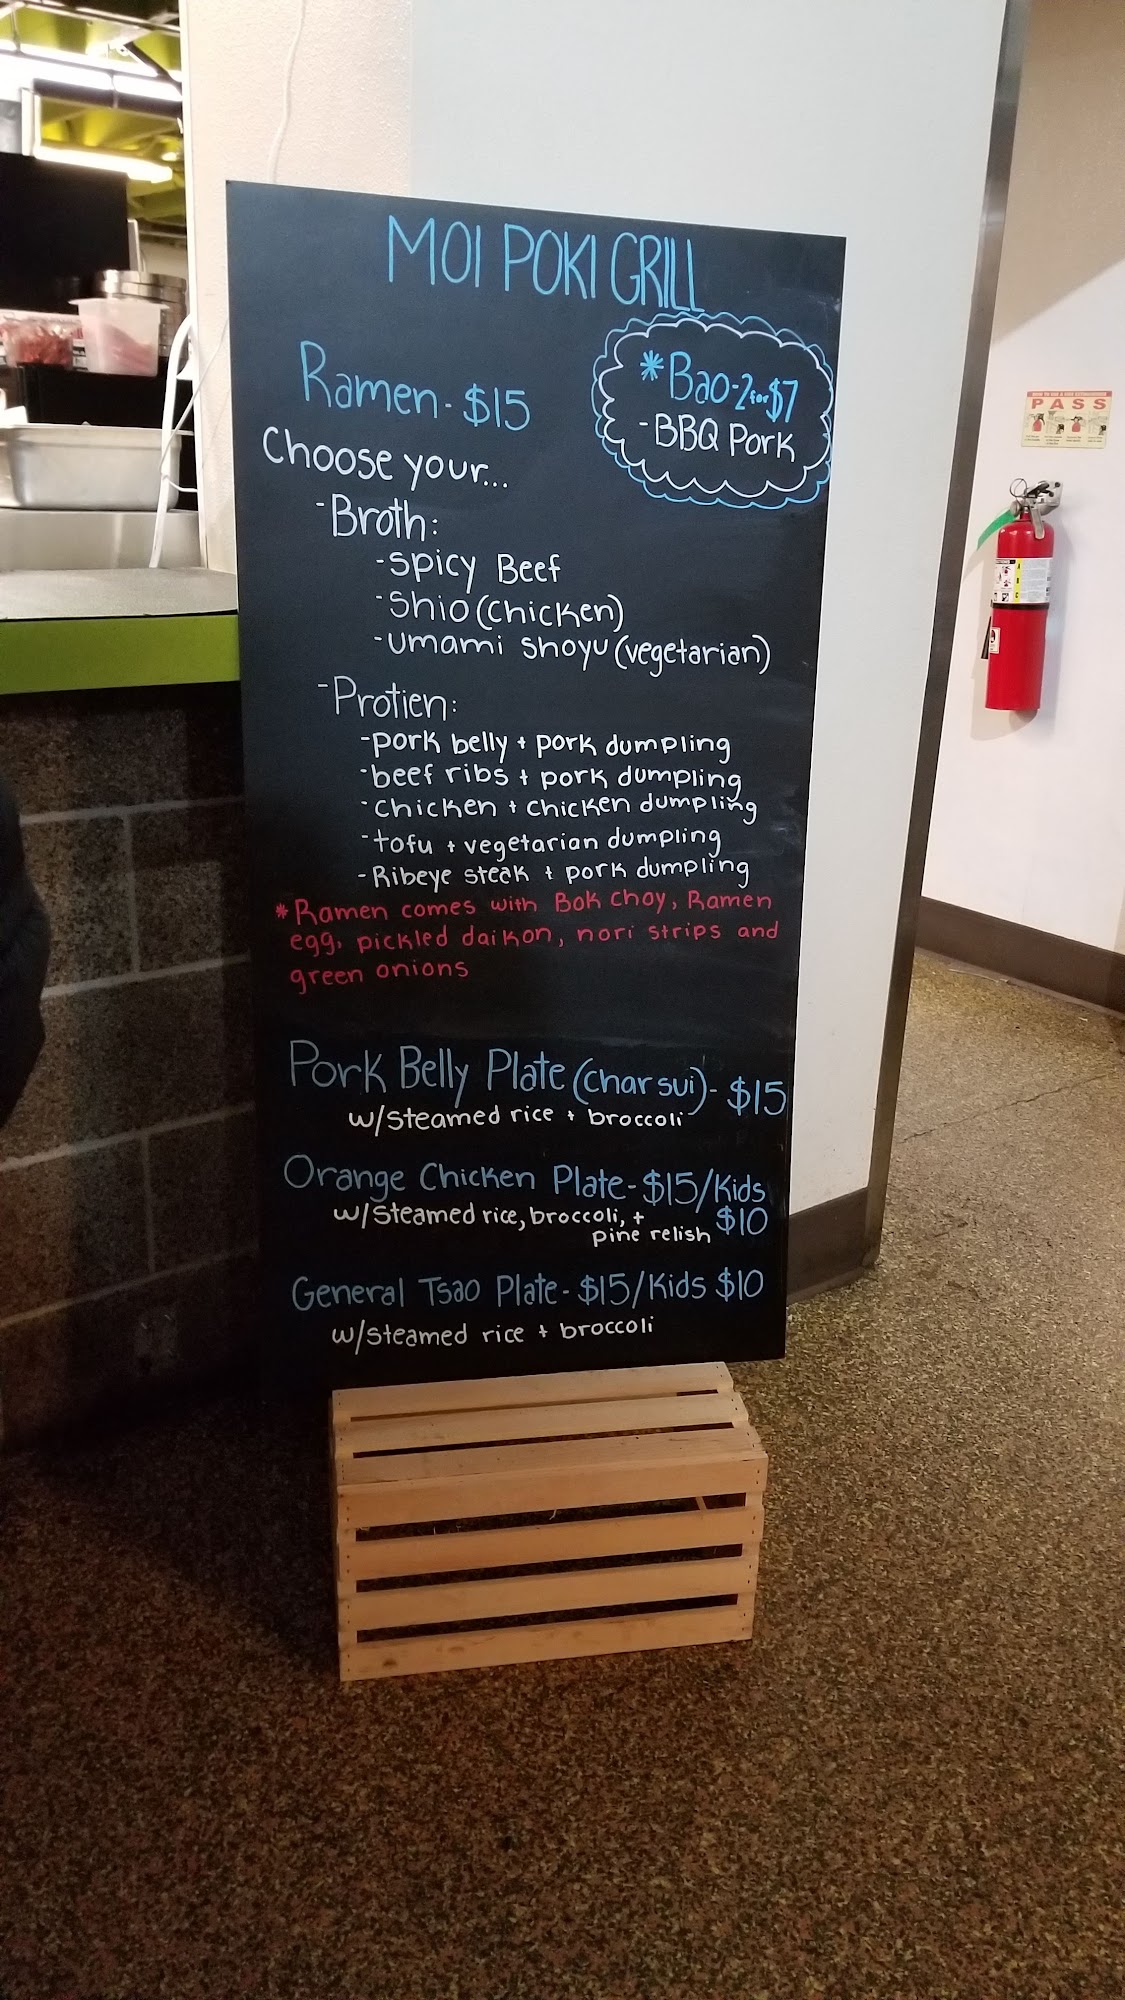 MOI POKI GRILL
Ramen - $15
*Bao - 2 for $7
- BBQ Pork
Choose your...
- Broth:
- spicy Beef
- Shio (chicken)
- umami shoyu (vegetarian)
- Protien:
- pork belly + pork dumpling
- beef ribs + pork dumpling
- Chicken + chicken dumpling
- tofu + vegetarian dumpling
- Ribeye steak + pork dumpling
*Ramen comes with Bok Choy, Ramen
egg, pickled daikon, nori strips and
green onions
Pork Belly Plate (char sui) - $15
w/steamed rice + broccoli
Orange Chicken Plate - $15/Kids
$10
w/steamed rice, broccoli, +
pine relish
General Tsao Plate - $15/Kids $10
w/steamed rice + broccoli
PASS